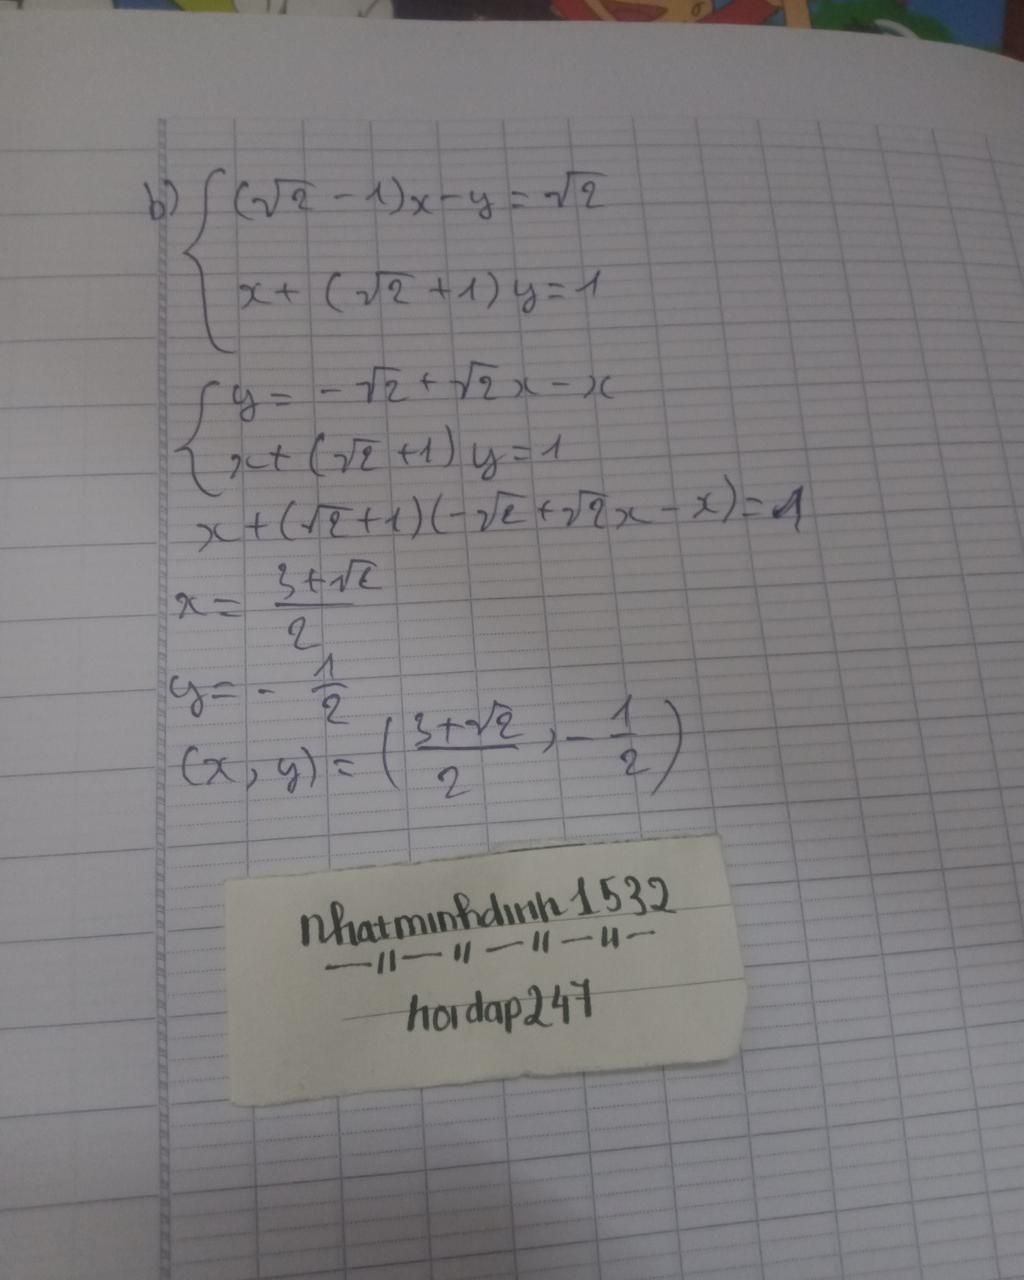 b) { (√2 - 1)x - y = √2
x + (√2 + 1) y = 1
{ y = - √2 + √2 x - x
x + (√2 + 1) y = 1
x + (√2 + 1) (-√2 + √2 x - x) = 1
x = (3 + √2)/2
y = - 1/2
(x, y) = ((3 + √2)/2, - 1/2)
nhatminhdinh1532
— 11 — 11 — 11 — 11 —
hoidap247